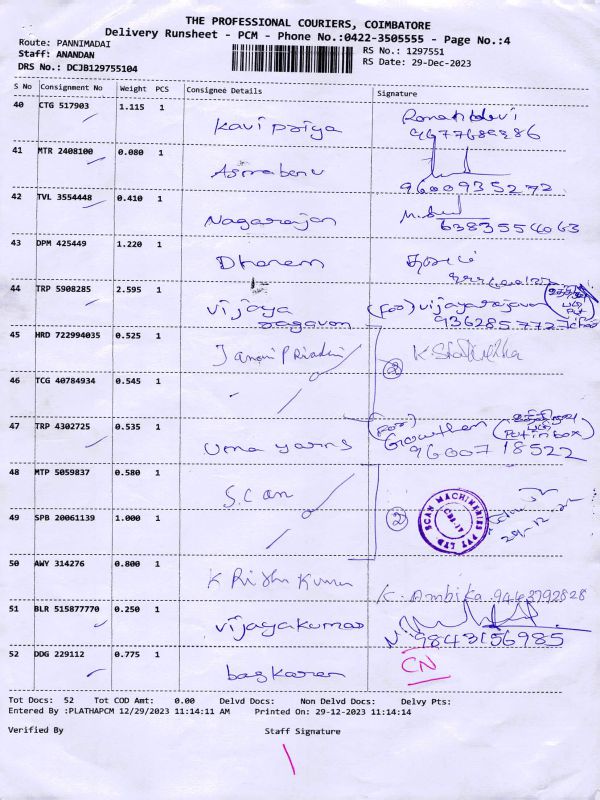 THE PROFESSIONAL COURIERS, COIMBATORE
Delivery Runsheet - PCM - Phone No.:0422-3505555 - Page No.:4
Route: PANNIMADAI
Staff: ANANDAN
DRS No.: DCJB129755104
RS No.: 1297551
RS Date: 29-Dec-2023
S No Consignment No Weight PCS Consignee Details Signature
40 CTG 517903 1.115 1 Kavi priya
41 MTR 2408100 0.080 1 Asmabanu 9600935272
42 TVL 3554448 0.410 1 Nagarajan 6383554063
43 DPM 425449 1.220 1 Dharem
44 TRP 5908285 2.595 1 vijaya ragavan (For) vijayaragavan
45 HRD 722994035 0.525 1 (2)
46 TCG 40784934 0.545 1
47 TRP 4302725 0.535 1 Uma yarns (For) Gowtham (Put in box) 9600718522
48 MTP 5059837 0.580 1 S.Can
49 SPB 20061139 1.000 1 (2) SCAN MACHINERIES PVT LTD CBE-17 29-12-
50 AWY 314276 0.800 1 K. Ambika 9463792828
51 BLR 515877770 0.250 1 vijayakumar 9843156985
52 DDG 229112 0.775 1 baskaran CN
Tot Docs: 52 Tot COD Amt: 0.00 Delvd Docs: Non Delvd Docs: Delvy Pts:
Entered By :PLATHAPCM 12/29/2023 11:14:11 AM Printed On: 29-12-2023 11:14:14
Verified By Staff Signature